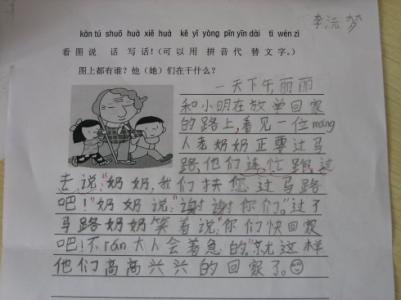 李沅梦
kàn tú shuō huà xiě huà kě yǐ yòng pīn yīn dài tì wén zì
看图说话写话!(可以用拼音代替文字。)
图上都有谁?他(她)们在干什么?
一天下午,丽丽
和小明在放学回家
的路上,看见一位máng
人老奶奶正要过马
路,他们连忙跑过
去,说:"奶奶,我们扶您过马路
吧!"奶奶说:"谢谢你们。"过了
马路奶奶笑着说:"你们快回家
吧!不rán大人会着急的。"就这样
他们高高兴兴的回家了。